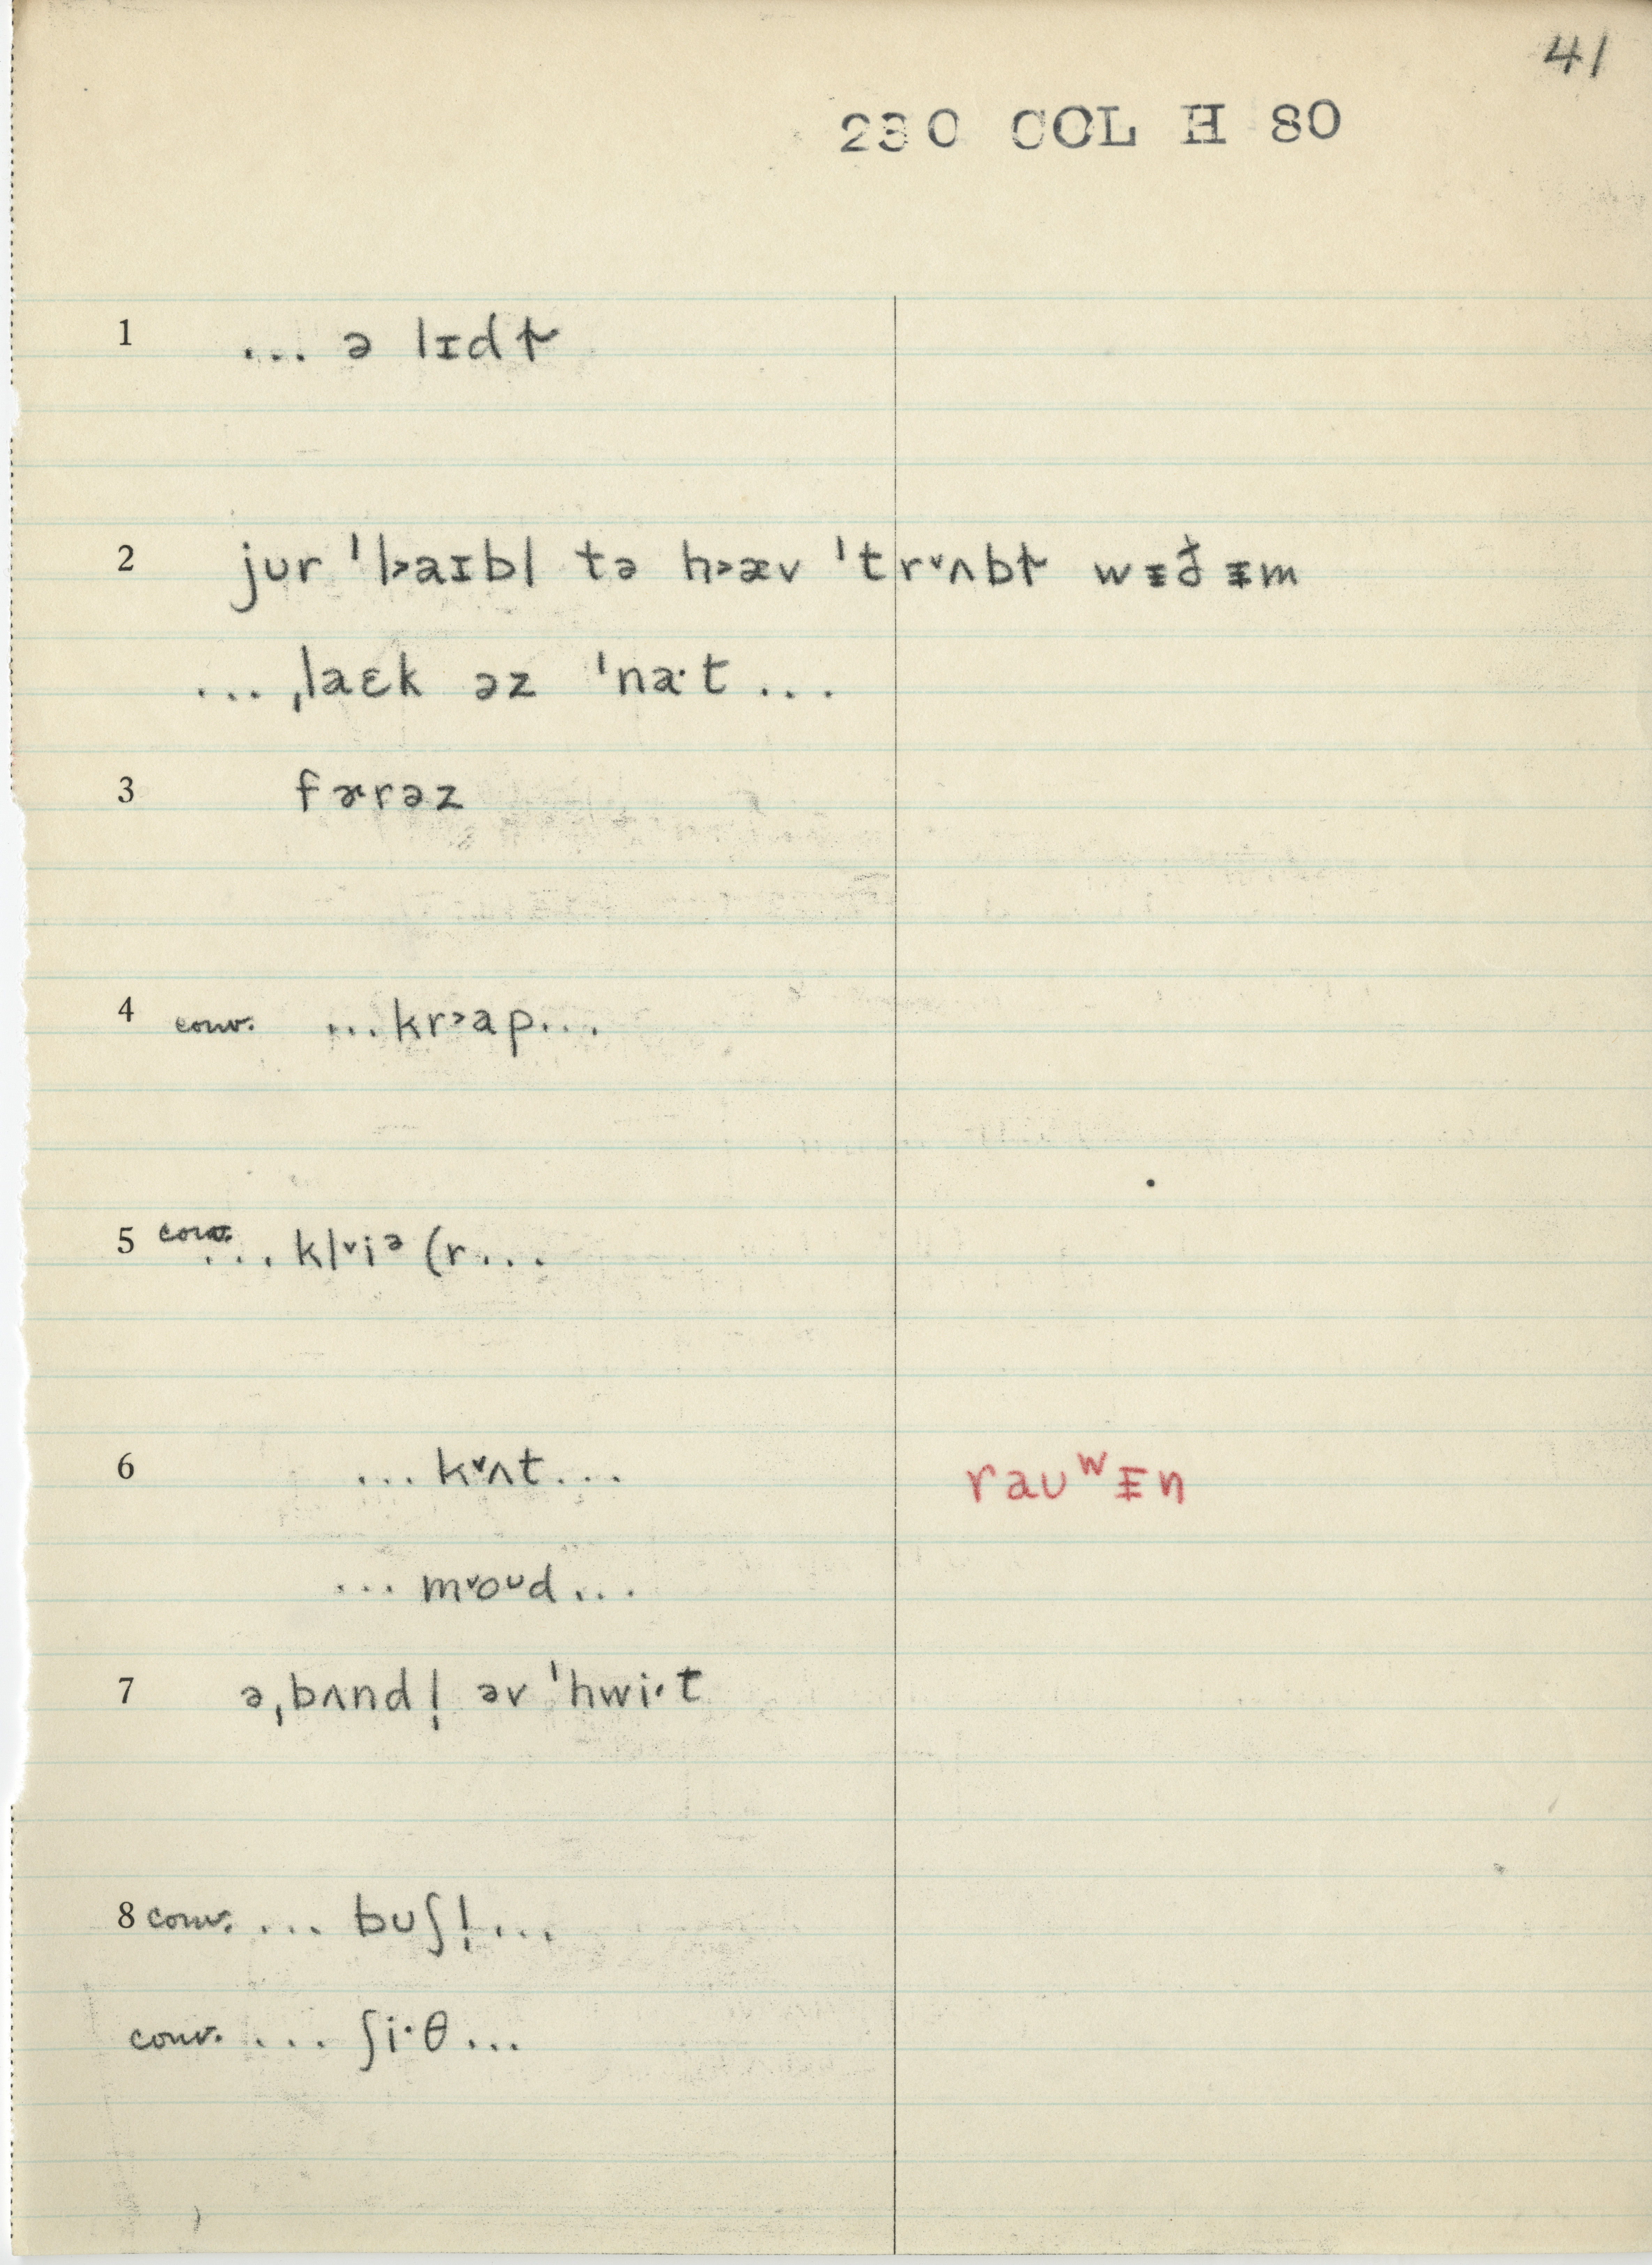 41
230 COL H 80
1 ... ə lɪdɫ
2 jʊr ˈl˃aɪbl tə h˃æv ˈtrˇʌbɫ wᵻð ᵻm
... ˌlaɛk əz ˈna·t ...
3 fɚrəz
4 conv. ...kr˃ap...
5 conv. ... klˇiᵊ (r...
6 ...kˇʌt... raʊʷᵻn
...mˇoᶷd...
7 ə ˌbʌndl̩ əv ˈhwi·t
8 conv. ... bʊʃl̩...
conv. ... ʃi·θ...